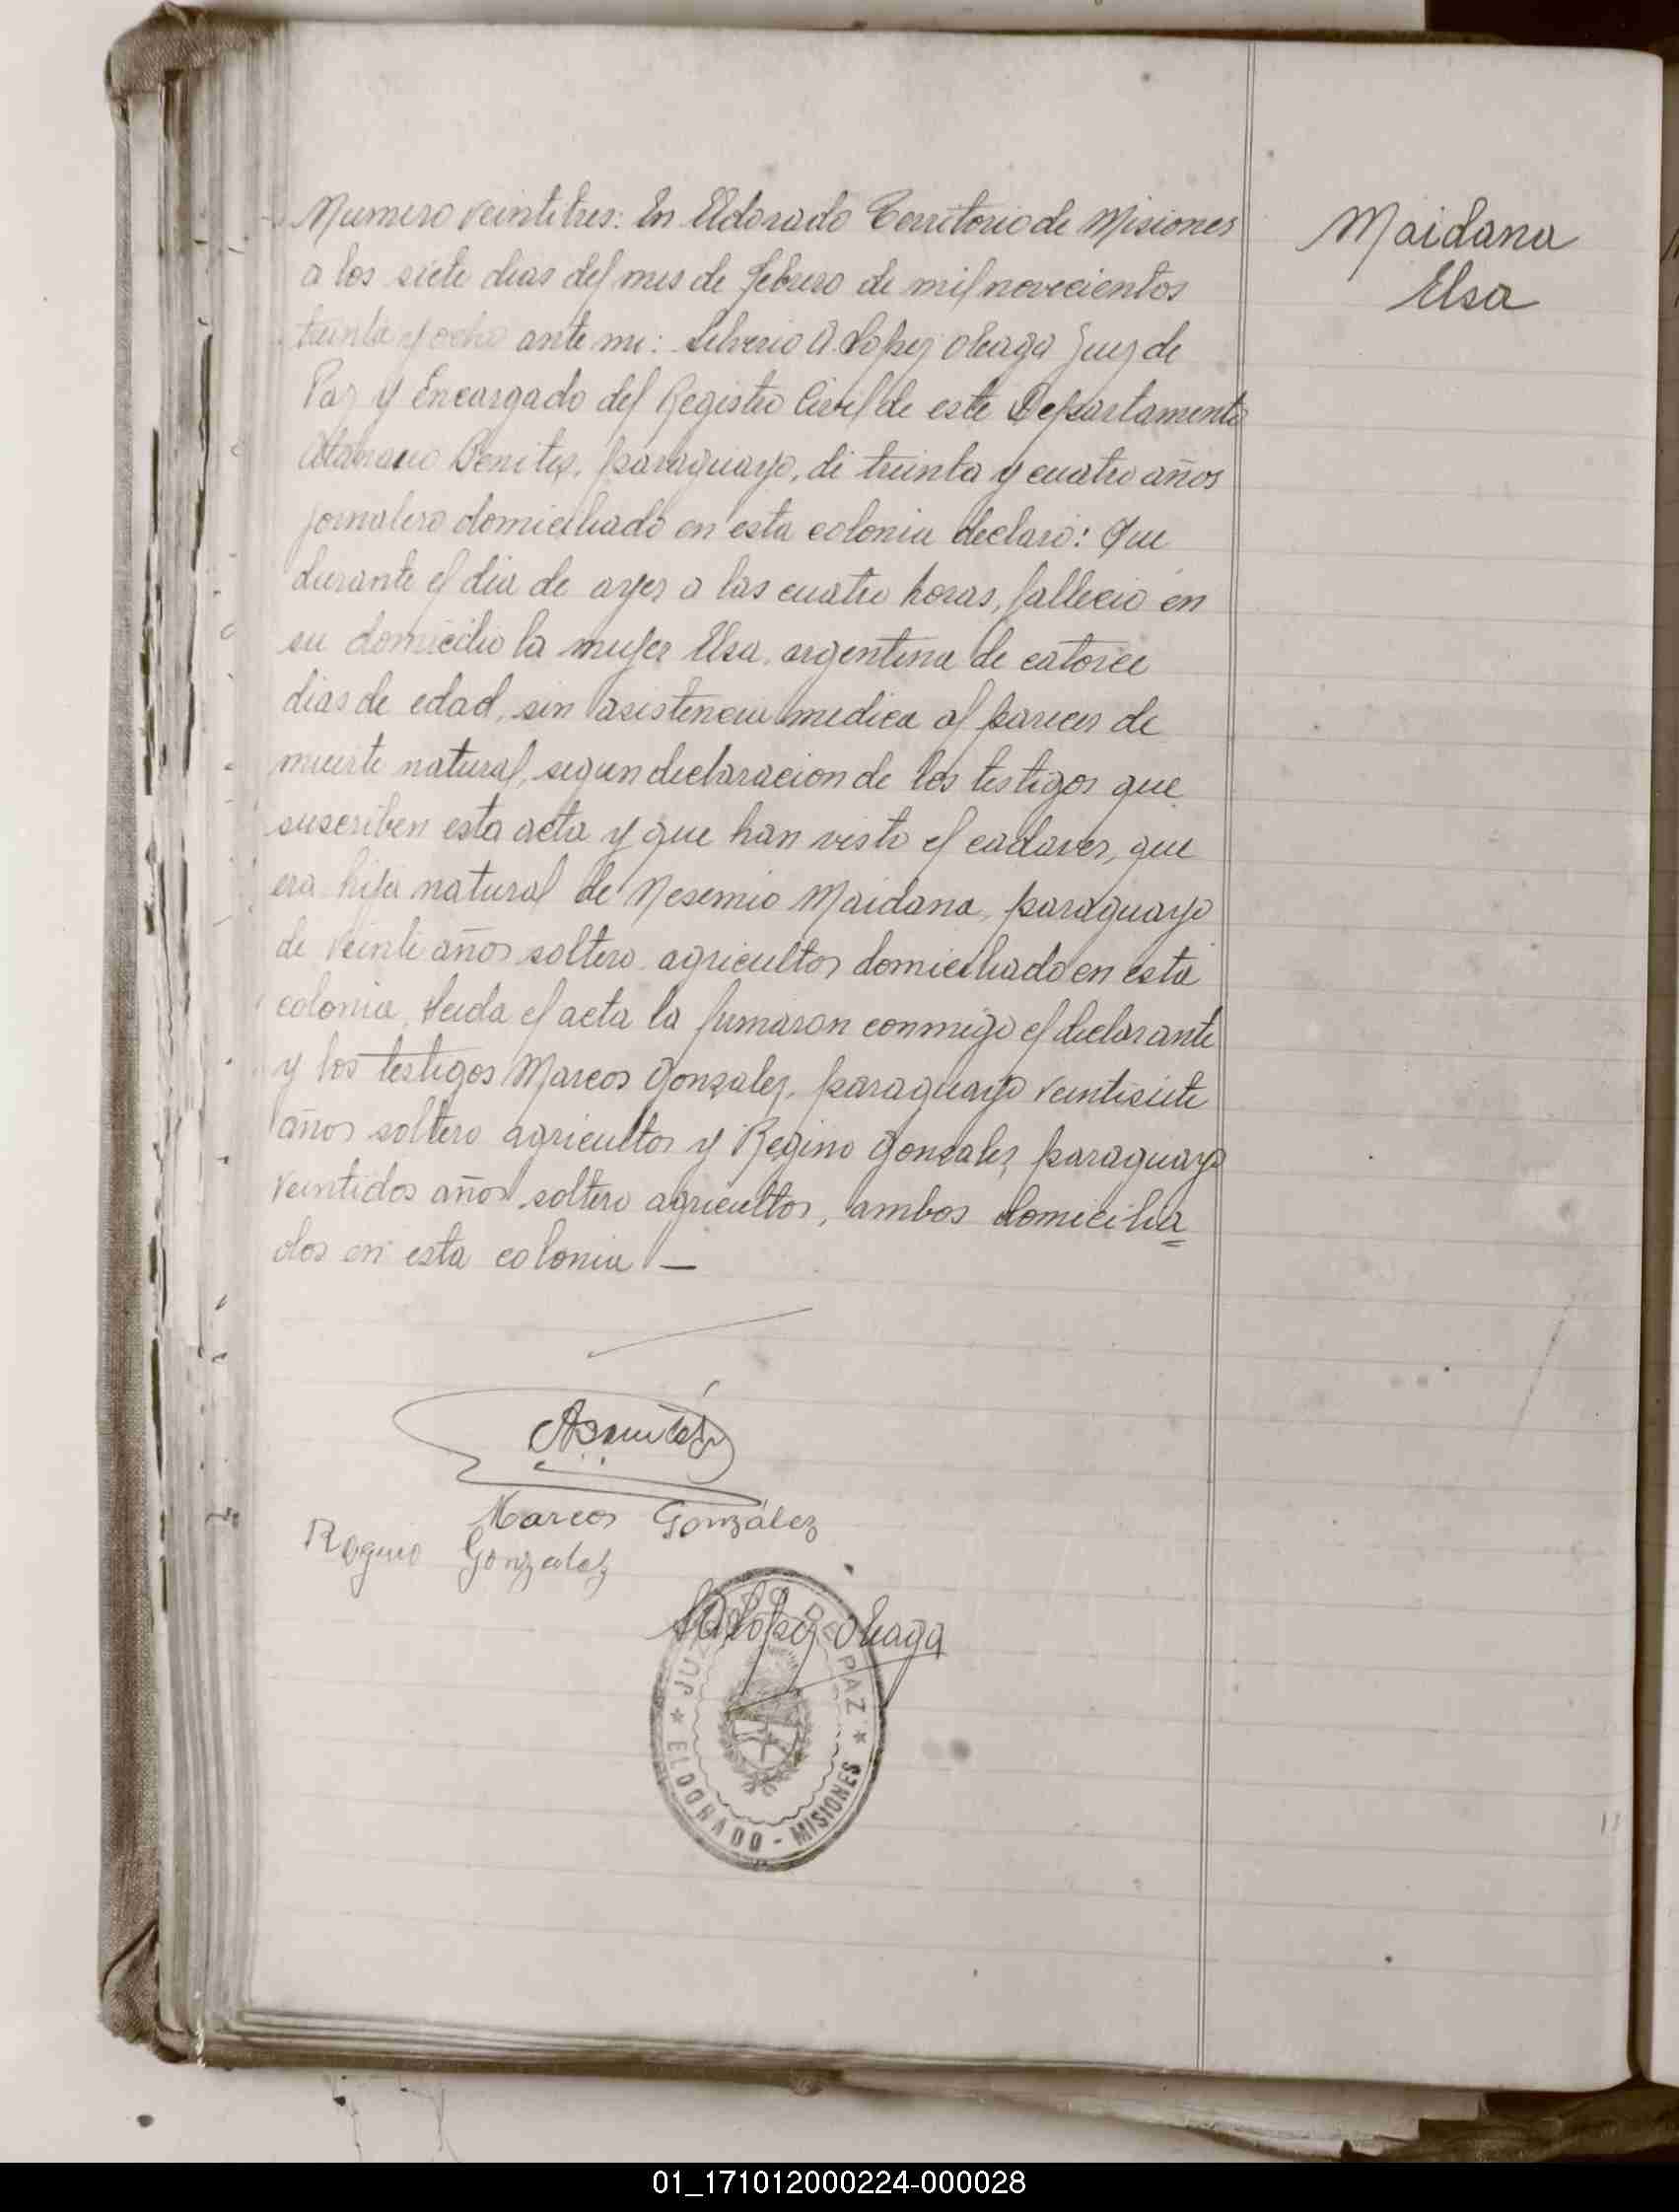 Numero veintitres: En Eldorado Territorio de Misiones
a los siete dias del mes de febrero de mil novecientos
treinta y ocho ante mi: Silverio A. Lopez Oleaga Juez de
Paz y Encargado del Registro Civil de este Departamento
Atanacio Benitez, paraguayo, de treinta y cuatro años
jornalero domiciliado en esta colonia declaró: Que
durante el dia de ayer a las cuatro horas, fallecio en
su domicilio la mujer Elsa, argentina de catorce
dias de edad, sin asistencia medica al parecer de
muerte natural, segun declaracion de los testigos que
suscriben esta acta y que han visto el cadaver, que
era hija natural de Nesemio Maidana, paraguayo
de veinte años soltero agricultor domiciliado en esta
colonia. Leida el acta la firmaron conmigo el declarante
y los testigos Marcos Gonzalez, paraguayo veintisiete
años soltero agricultor y Regino Gonzalez, paraguayo
veintidos años soltero agricultor, ambos domicilia=
dos en esta colonia —
Maidana
Elsa
ABenitez
Marcos González
Regino Gonzalez
SALopez Oleaga
JUZGADO DE PAZ
* ELDORADO - MISIONES *
01_171012000224-000028